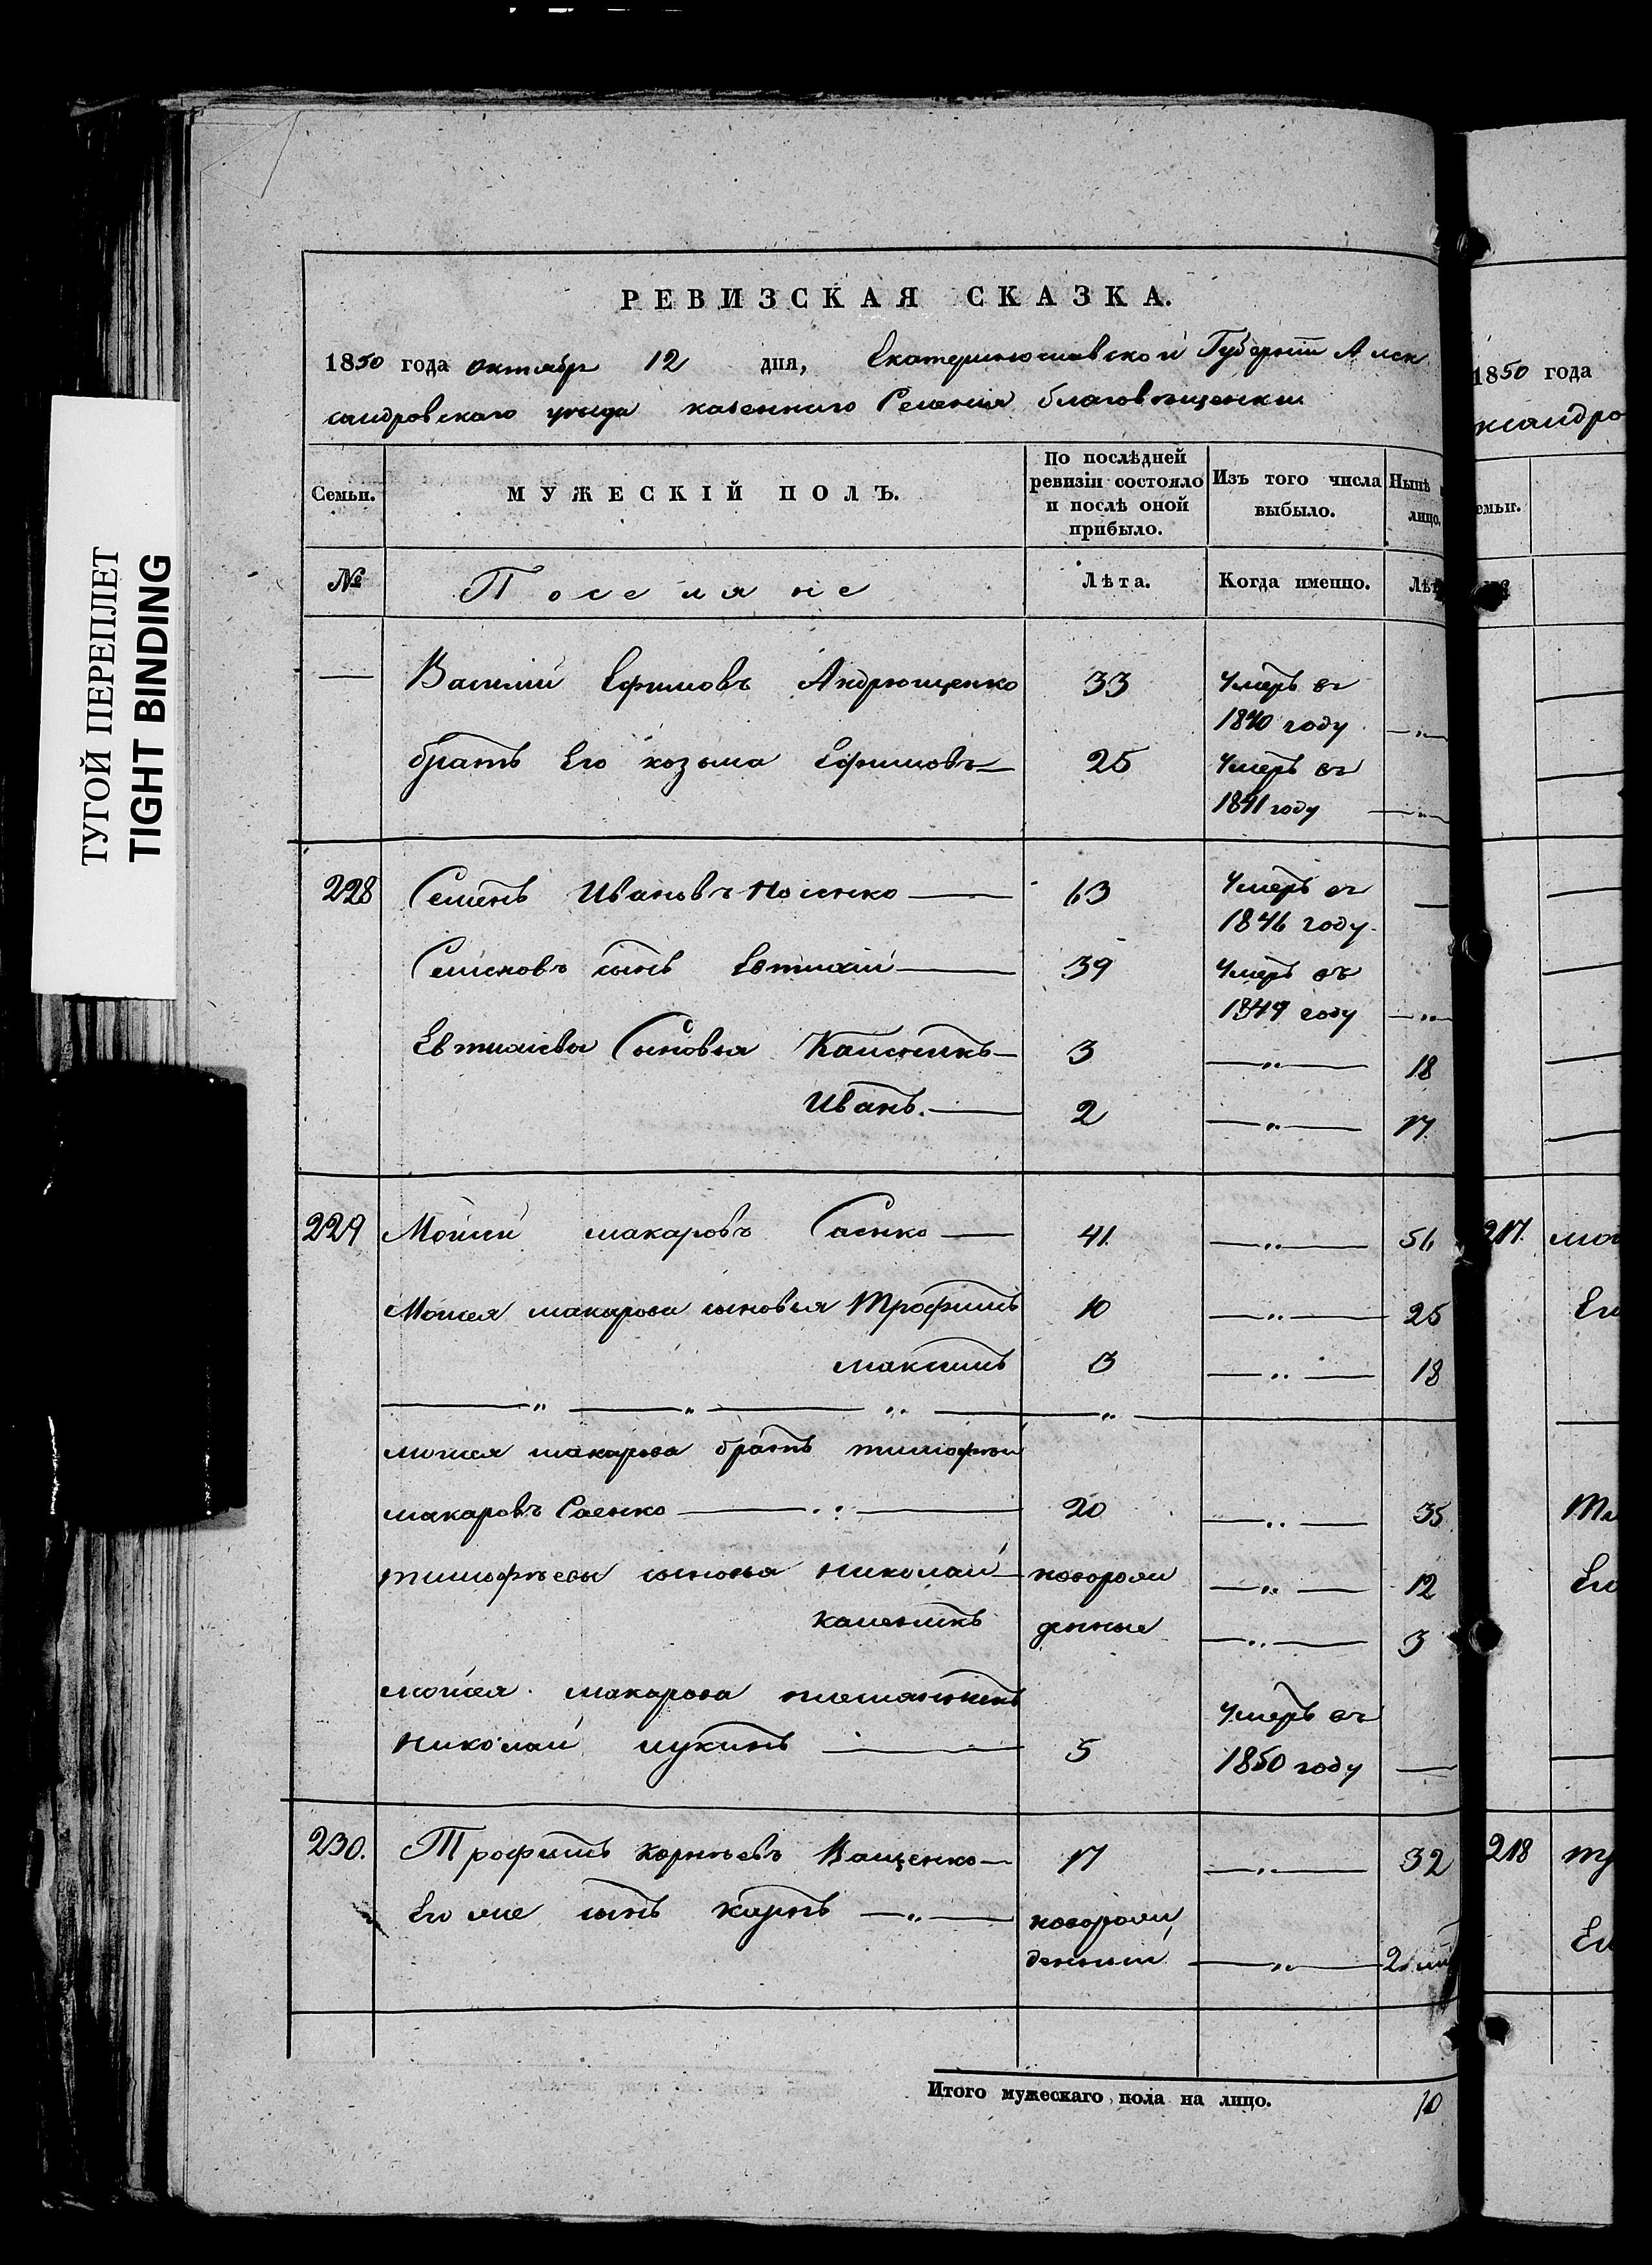 ТУГОЙ ПЕРЕПЛЕТ
TIGHT BINDING
РЕВИЗСКАЯ СКАЗКА.
1850 года октября 12 дня, Екатеринославской Губернiи Алек
сандровскаго уѣзда казеннаго Селенiя благовѣщенки
Семьи. МУЖЕСКІЙ ПОЛЪ. По послѣдней ревизіи состояло и послѣ оной прибыло. Изъ того числа выбыло. Нынѣ лицо.
№ Поселяне Лѣта. Когда именно. Лѣт
— Василiй Ефимовъ Андрющенко 33 Умеръ въ
1840 году —"—
братъ Его козьма Ефимовъ — 25 Умеръ въ
1841 году —"—
228 Семенъ Ивановъ Носенко — 63 Умеръ въ —
1846 году.
Семеновъ сынъ Евтихiй — 39 Умеръ въ
1849 году —"—
Евтихiевы Сыновья Калиникъ — 3 —"— 18
Иванъ. — 2 —"— 17.
229 Моисей макаровъ Саенко — 41. —"— 56
Моисея макарова сыновья Трофимъ 10 —"— 25
максимъ 3 —"— 18
—"—"—"—"—
моисея макарова братъ тимофей
макаровъ Саенко — 20 —"— 35
тимофѣевы сыновья николай — новорож —"— 12
калиникъ денные —"— 3
моисея макарова племянникъ Умеръ въ
николай лукинъ — 5 1850 году —
230. Трофимъ корнѣевъ Ващенко — 17 —"— 32
Его же сынъ карпъ —"— новорож
денный —"— 2
Итого мужескаго пола на лицо. 10
1850 года
ксандро
емьи.
217. мои
Ег
218